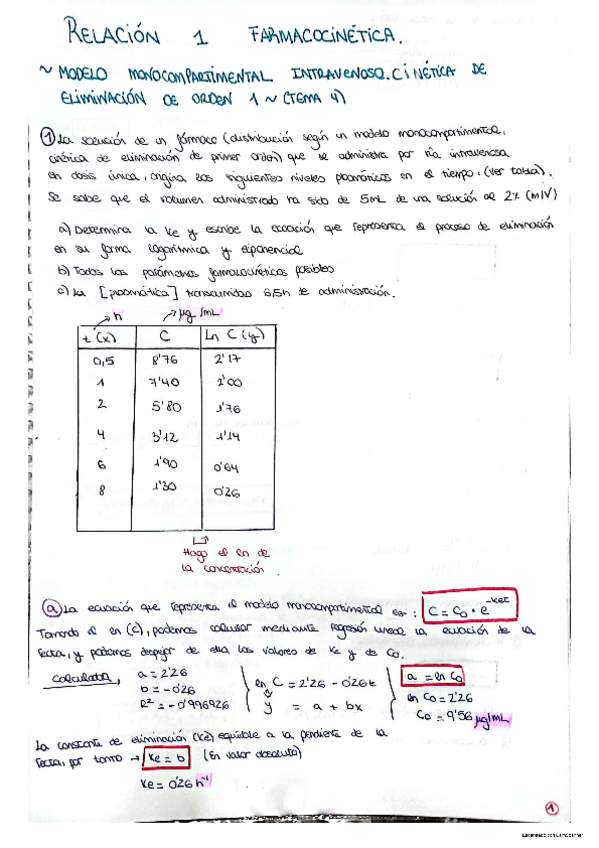 RELACIÓN 1 FARMACOCINÉTICA.
~ MODELO MONOCOMPARTIMENTAL INTRAVENOSO. CINÉTICA DE
ELIMINACIÓN DE ORDEN 1 ~ (TEMA 4)
① La solución de un fármaco (distribución según un modelo monocompartimental,
cinética de eliminación de primer orden) que se administra por vía intravenosa
en dosis única, origina los siguientes niveles plasmáticos en el tiempo: (ver tabla).
Se sabe que el volumen administrado ha sido de 5mL de una solución al 2% (m/V)
a) Determina la Ke y escribe la ecuación que representa el proceso de eliminación
en su forma logarítmica y exponencial
b) Todos los parámetros farmacocinéticos posibles
c) La [plasmática] transcurridas 6,5h de administración.
h μg/mL
t (x) C Ln C (y)
0,5 8'76 2'17
1 7'40 2'00
2 5'80 1'76
4 3'12 1'14
6 1'90 0'64
8 1'30 0'26
Hago el ln de
la concentración
ⓐ La ecuación que representa el modelo monocompartimental es: C = C0 · e^-Ket
Tomando el ln (C), podemos calcular mediante regresión lineal la ecuación de la
recta, y podemos despejar de ella los valores de Ke y de C0.
Calculadora, a = 2'26
b = -0'26
R² = -0'996926
ln C = 2'26 - 0'26t
y = a + bx
a = ln C0
ln C0 = 2'26
C0 = 9'56 μg/mL
La constante de eliminación (Ke) equivale a la pendiente de la
recta, por tanto → Ke = b (En valor absoluto)
Ke = 0'26 h⁻¹
1